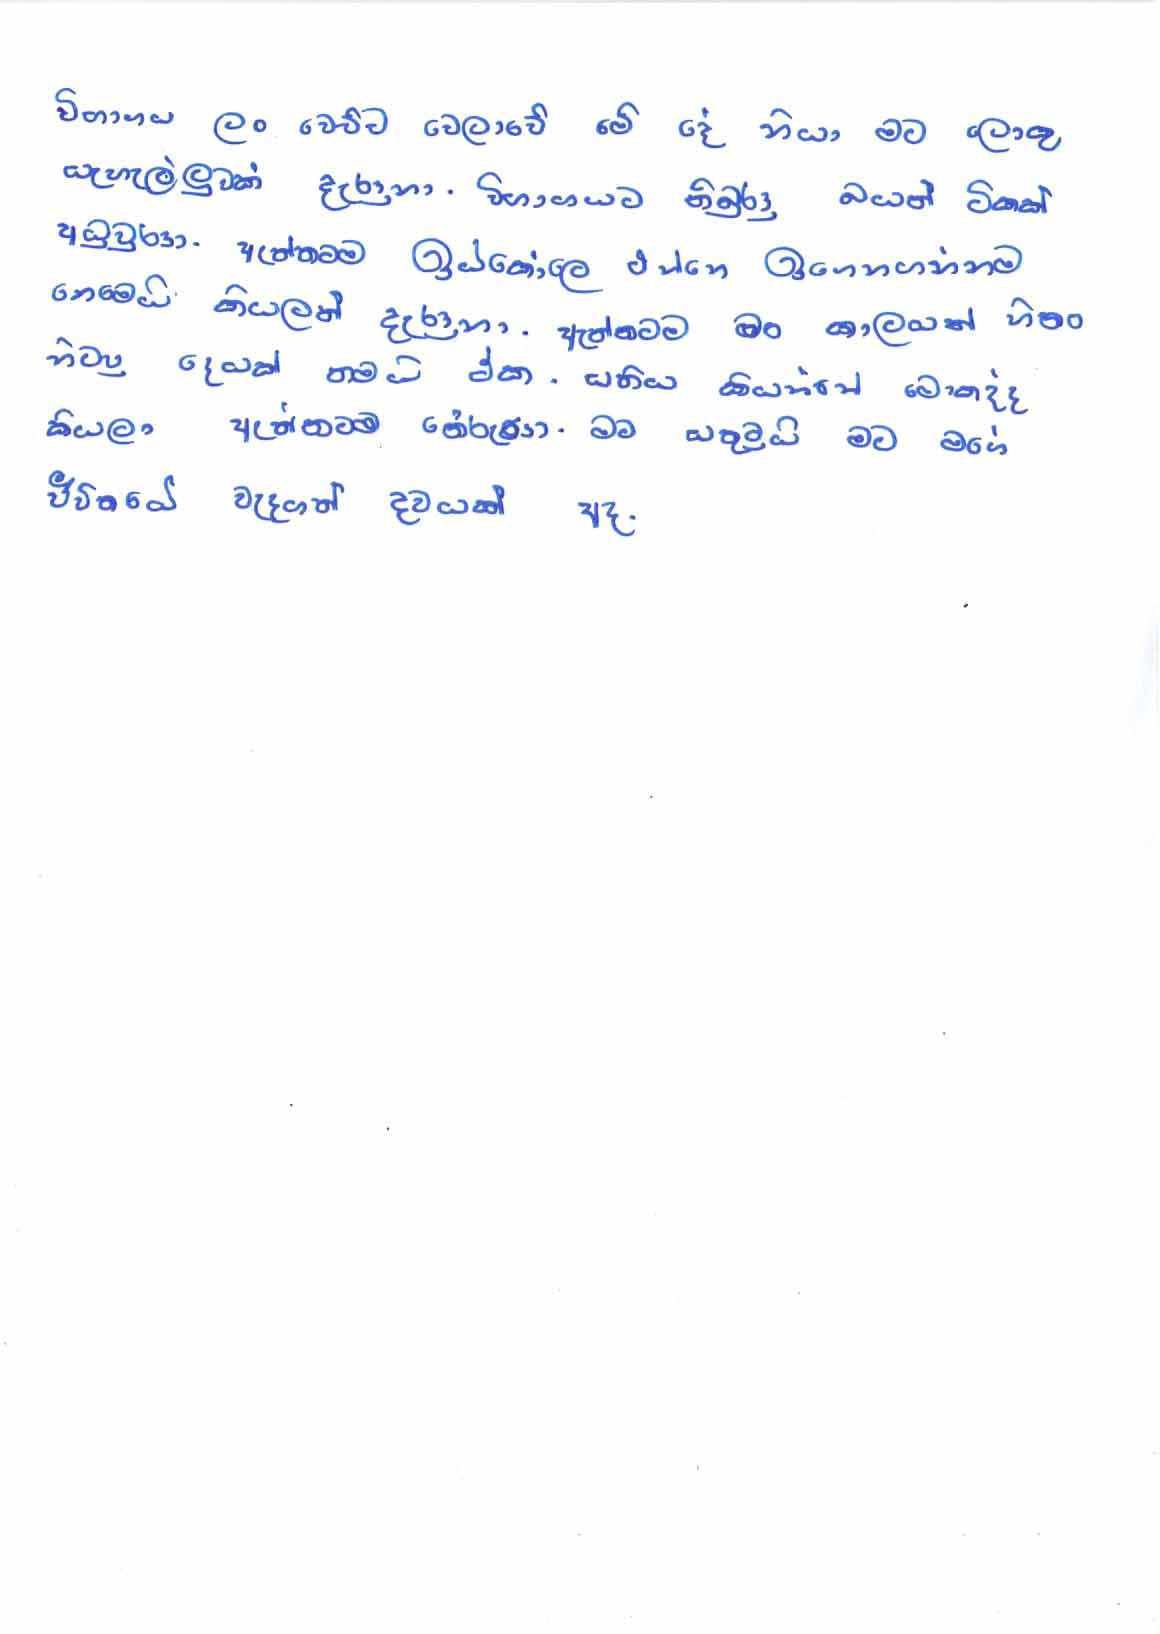 විභාගය ලං වෙච්ච වෙලාවේ මේ දේ නියා මට ලොකු
සැහැල්ලුවක් දැරුනා. විභාගයට තිබුරු බයත් ටිකක්
අඩුවුරා. ඇත්තටම ඉස්කෝලෙ එන්නෙ ඉගෙනගන්නම
නෙමෙයි කියලත් දැරුනා. ඇත්තටම මං කාලයක් හිතං
හිටපු දෙයක් තමයි ඒක. සතිය කියන්නේ මොකද්ද
කියලා ඇත්තටම තේරුණා. මම සතුටුයි මට මගේ
ජීවිතයේ වැදගත් දවයක් අද.